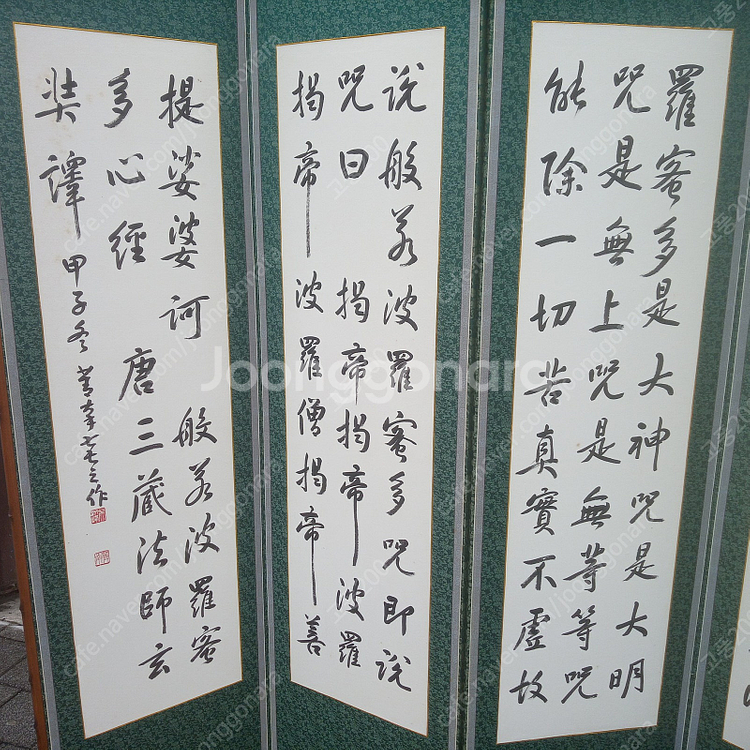 羅蜜多是大神呪是大明
呪是無上呪是無等等呪
能除一切苦真實不虛故
說般若波羅蜜多呪即說
呪曰 揭帝揭帝波羅
揭帝波羅僧揭帝菩
提娑婆訶 般若波羅蜜
多心經 唐三藏法師玄
奘譯 甲子冬 之作
Joonggonara
cafe.naver.com/joonggonara
고풍2000